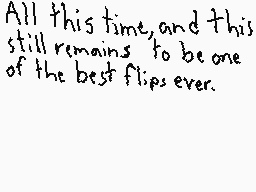 All this time, and this
still remains to be one
of the best flips ever.